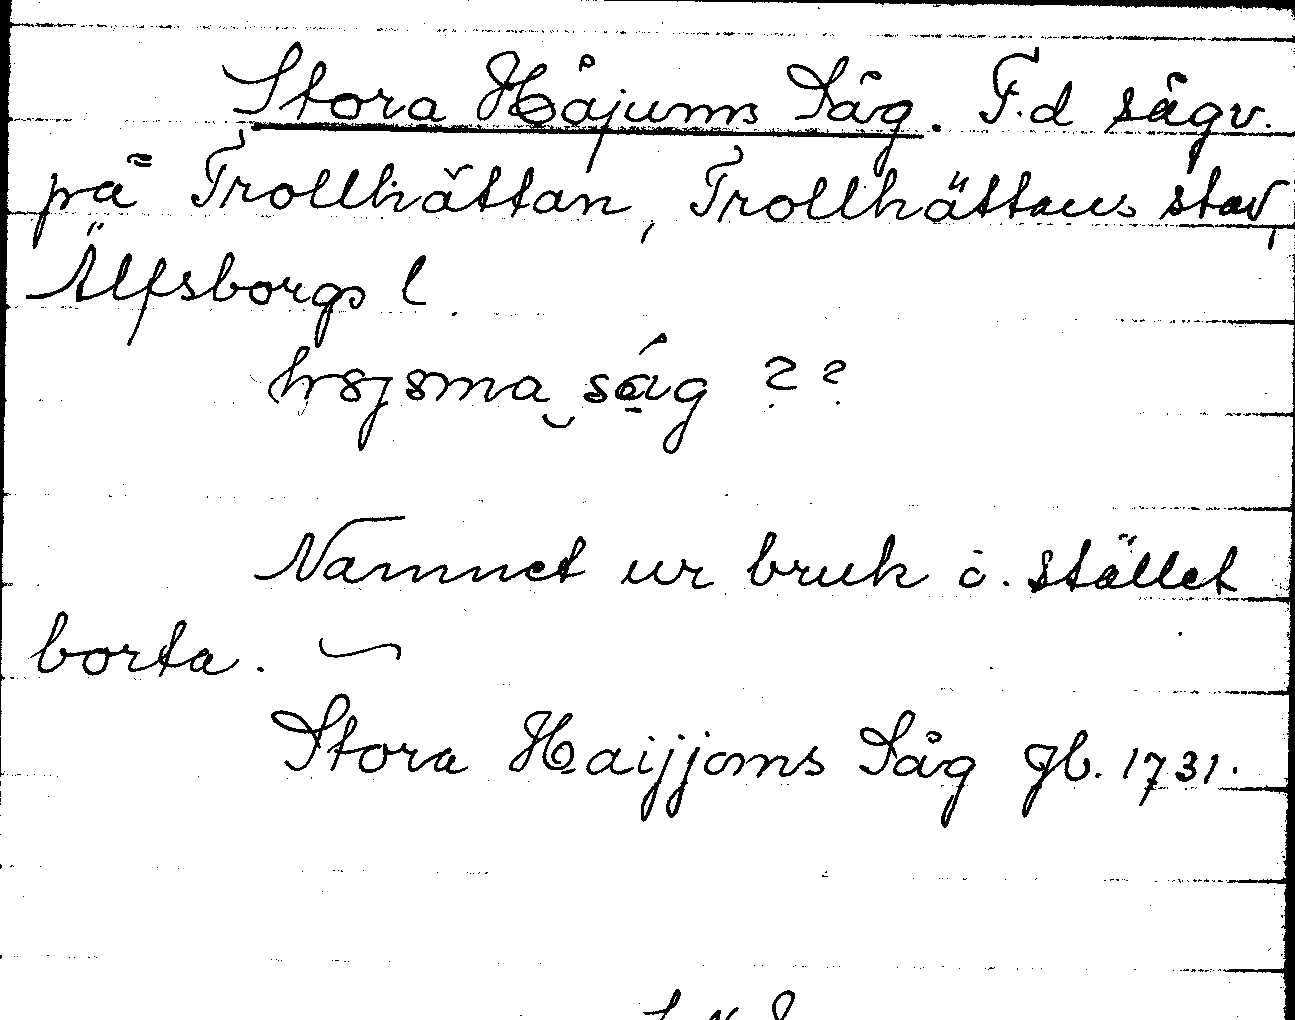 Stora Håjums Såg. F.d sågv.
på Trollhättan, Trollhättans stad,
Älfsborgs l.
såg ??
Namnet ur bruk o. stället
borta.
Stora Haijjoms Såg Jb. 1731.